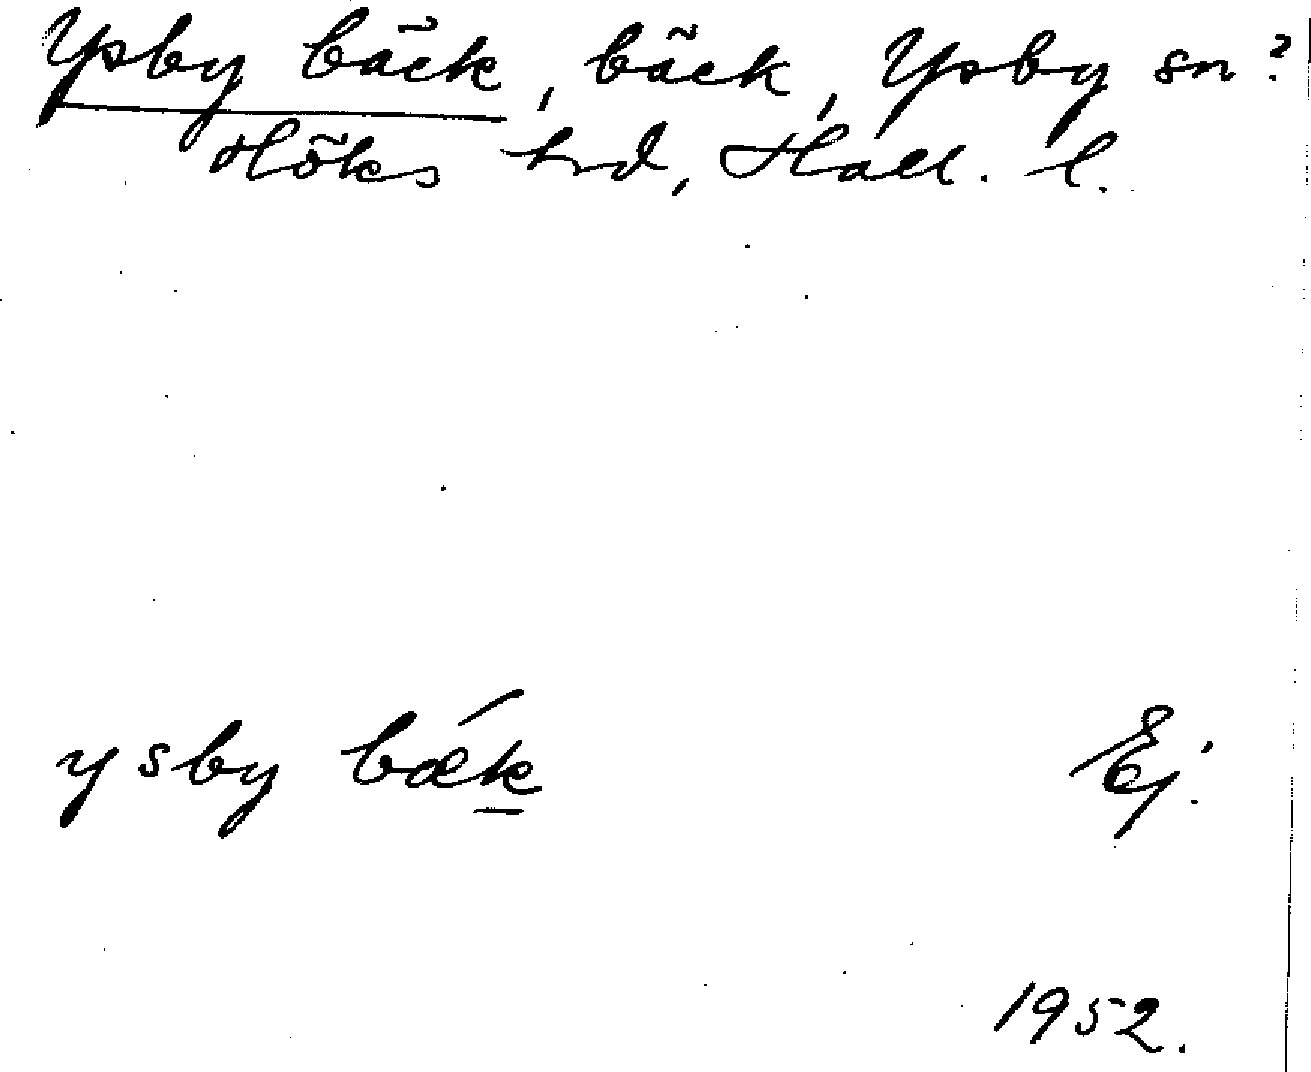 Ysby bäck, bäck, Ysby sn?
Höks hrd, Hall. l.
ysby bǽk Ej.
1952.